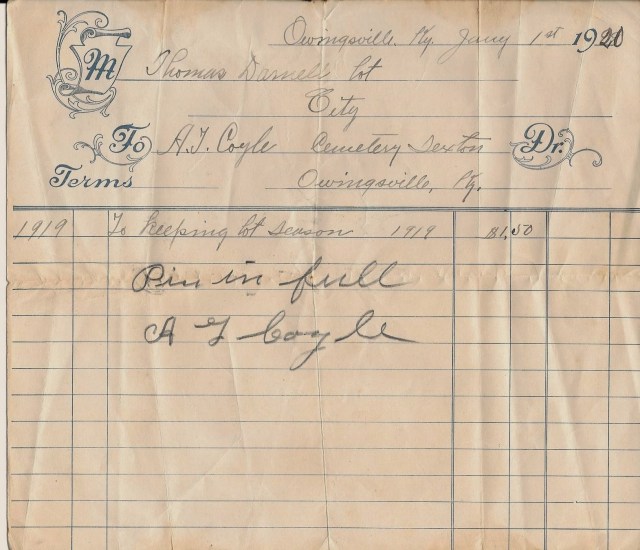 Owingsville, Ky. Jany 1st 1920
M Thomas Darnell lot
City
To A.J. Coyle Cemetery Sexton Dr.
Terms Owingsville, Ky.
1919 To keeping lot season 1919 $1.50
in full
A J Coyle